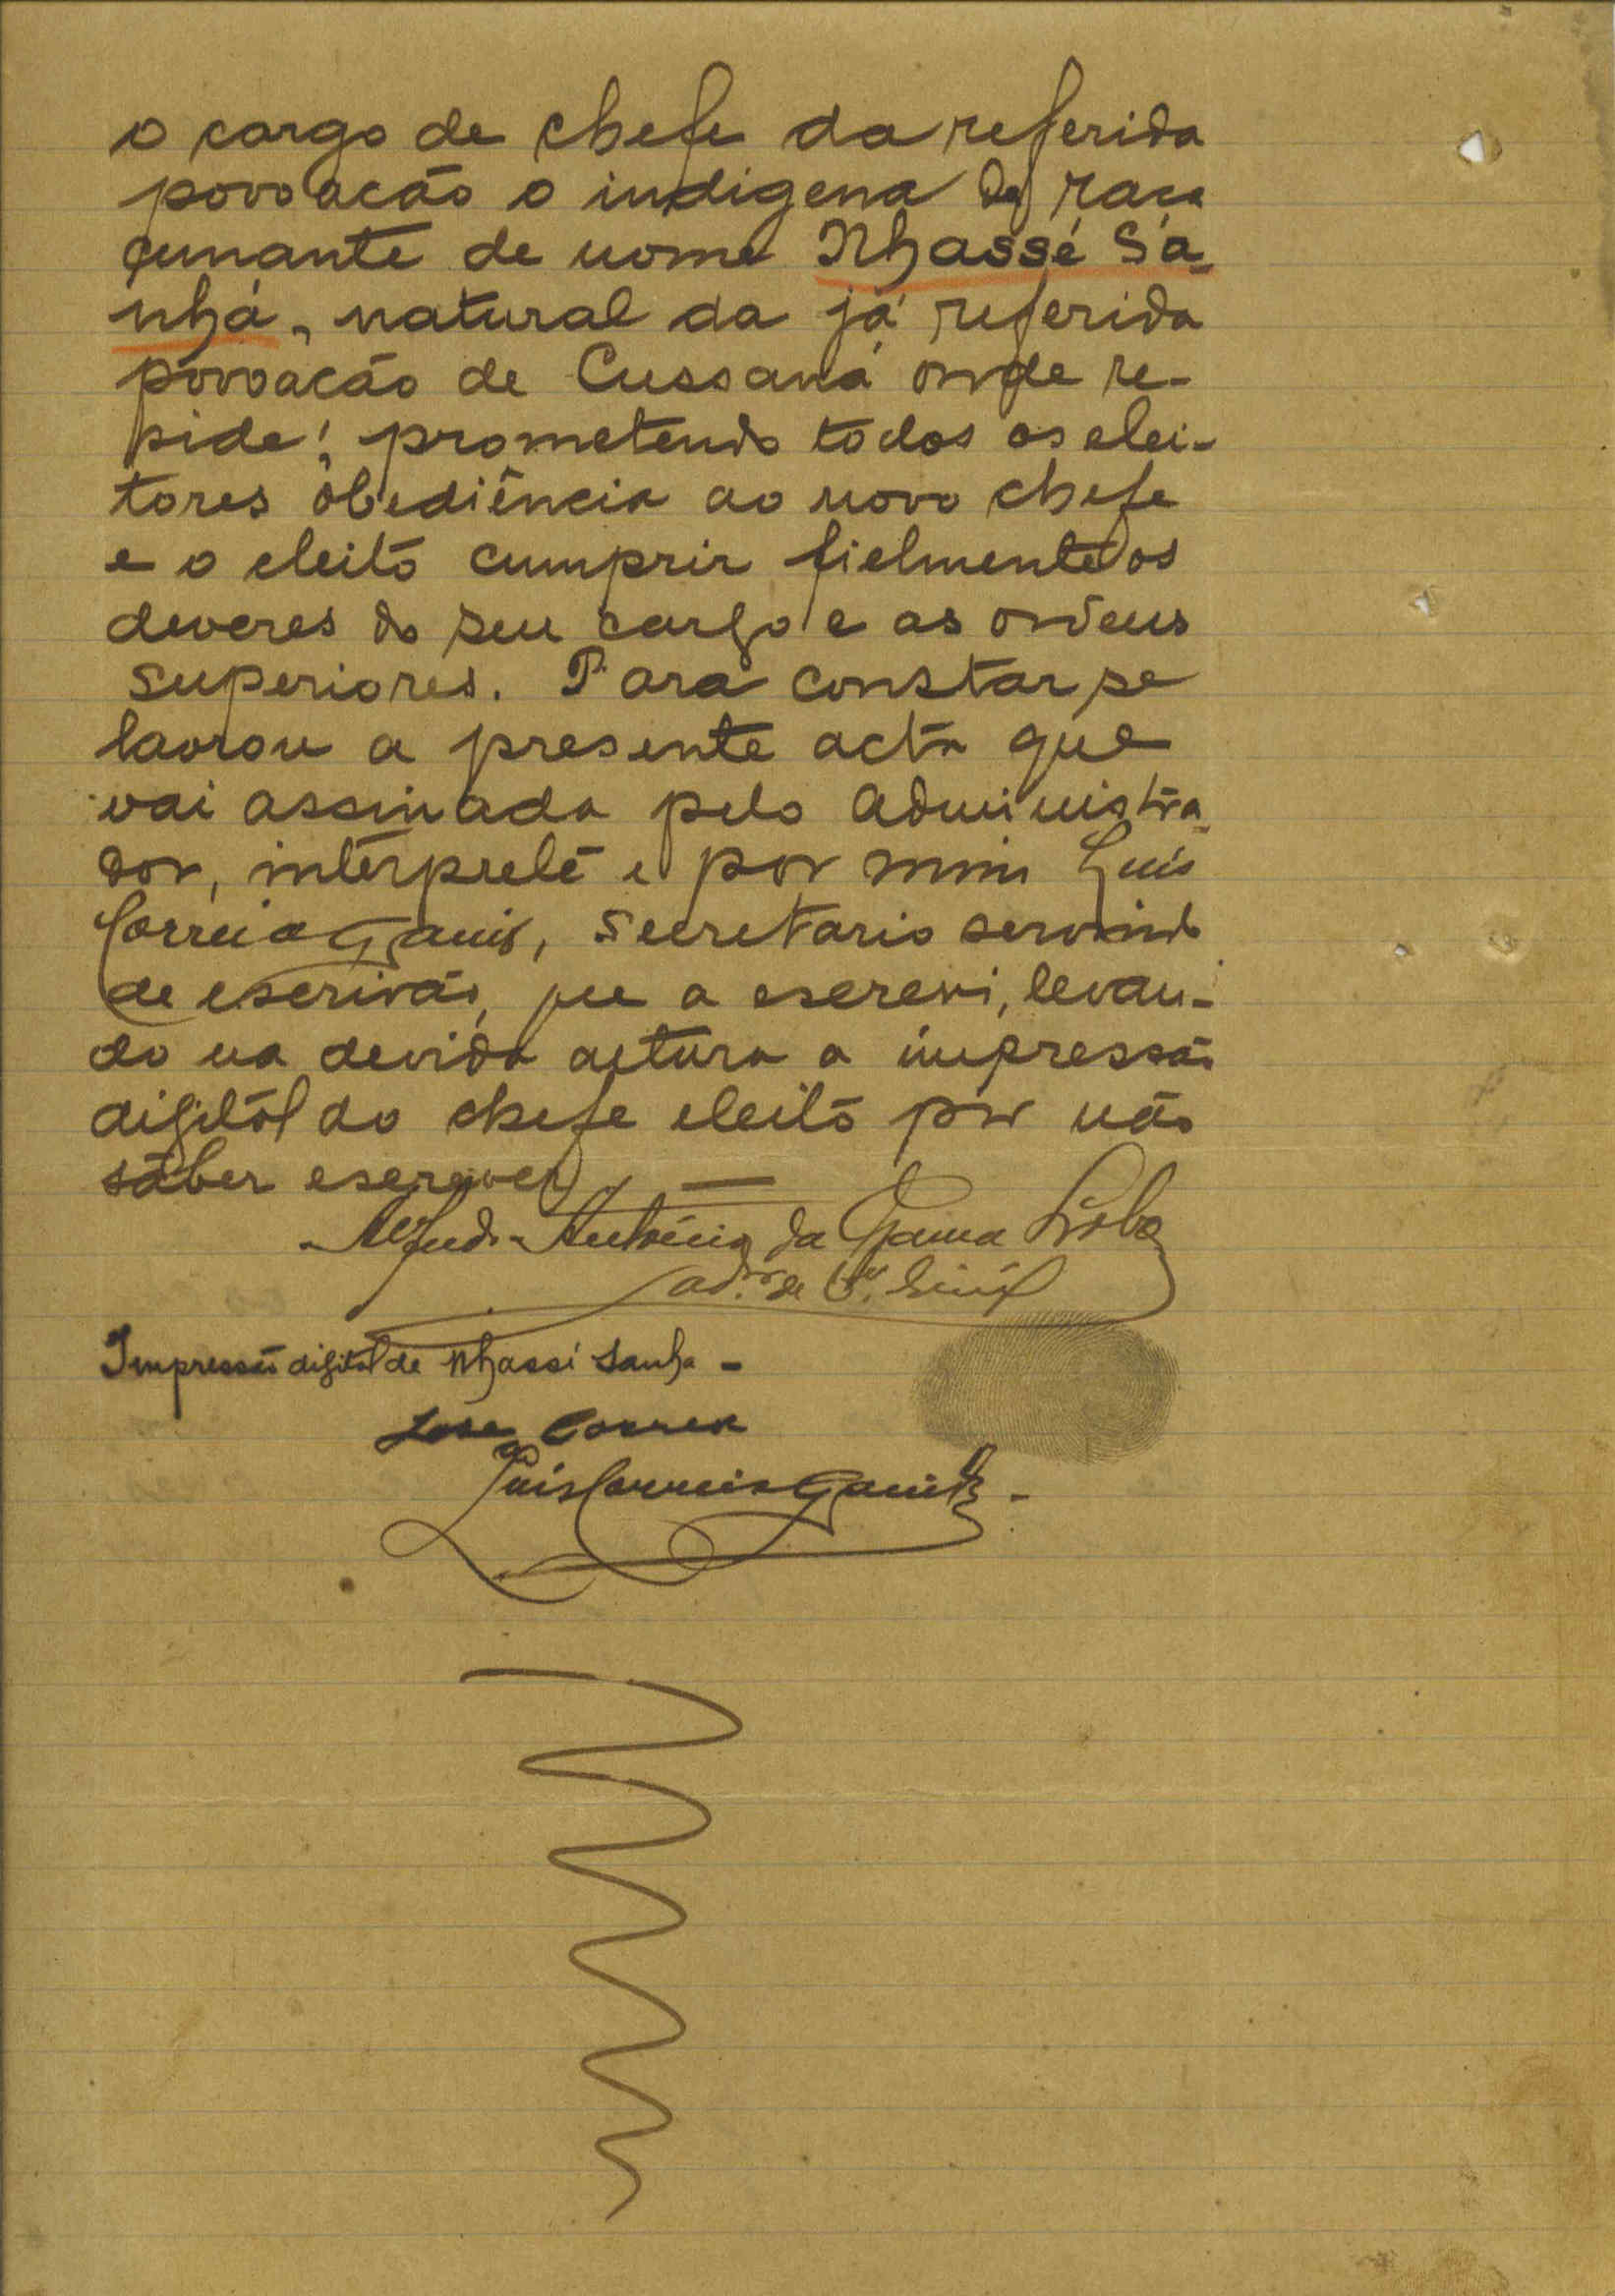 o cargo de chefe da referida
povoacão o indigena de raça
çunante de nome Nhassé Sa-
nhá, natural da já referida
povoacão de Cussaná onde re-
side; prometendo todos os elei-
tores obediência ao novo chefe
e o eleito cumprir fielmente os
deveres do seu cargo e as ordens
superiores. Para constar se
lavrou a presente acta que
vai assinada pelo Administra-
dor, interprete e por mim Luís
Correia, Secretario servindo
de escrivão, que a escrevi, levan-
do na devida altura a impressão
digital do chefe eleito por não
saber escrever. —
António da Gama Lobo
Impressão digital de Nhassé Sanha -
José Correa
Luís Correia